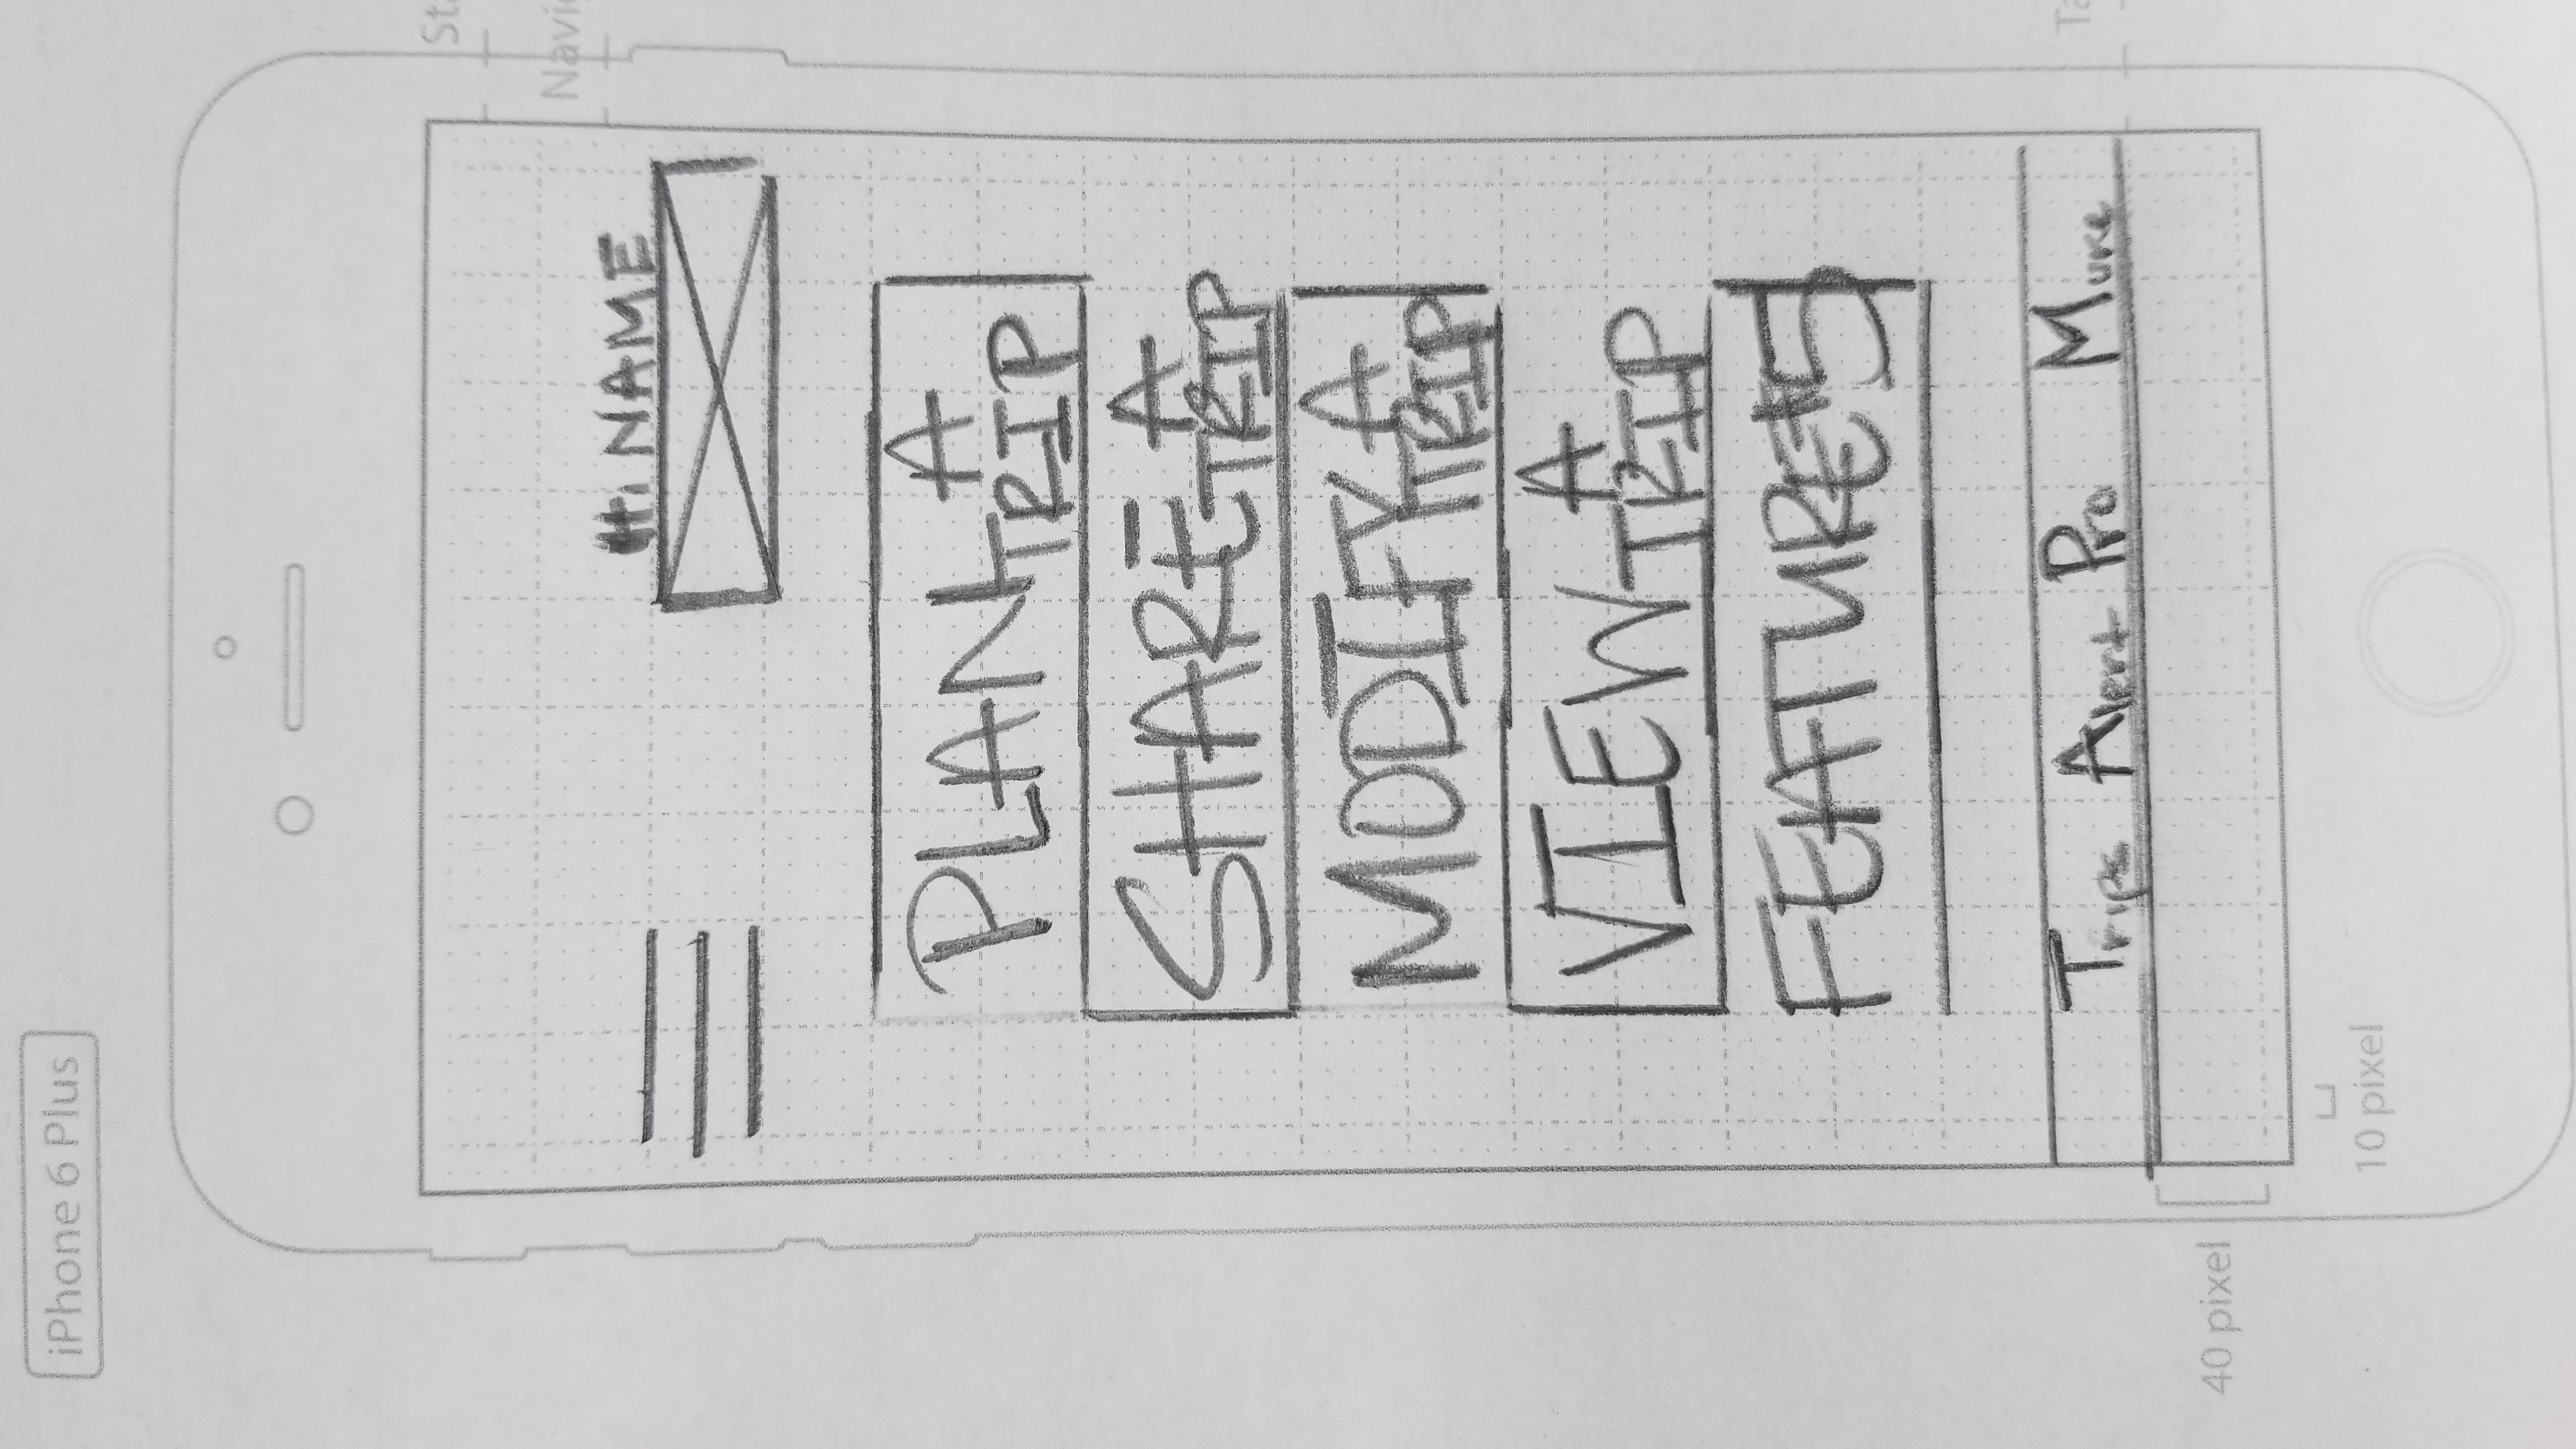 iPhone 6 Plus
Hi NAME
PLAN A
TRIP
SHARE A
TRIP
MODIFY A
TRIP
VIEW A
TRIP
FEATURE'S
Trips Alert Pro
40 pixel
10 pixel